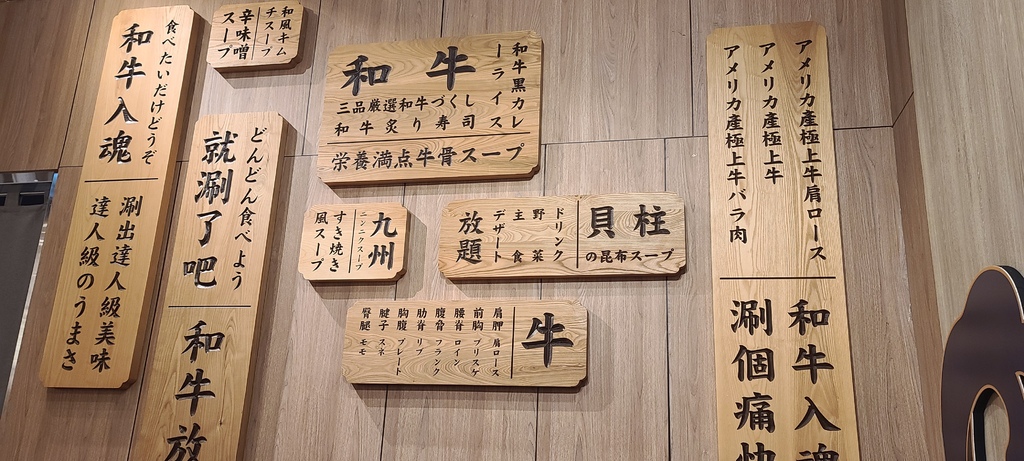 食べたいだけどうぞ
和牛入魂
涮出達人級美味
達人級のうまさ
和風キム
チスープ
辛味噌
スープ
どんどん食べよう
就涮了吧
和牛放
和牛黒カレ
ーライス
和牛
三品厳選和牛づくし
和牛炙り寿司
栄養満点牛骨スープ
九州
ニンニクスープ
すき焼き
風スープ
貝柱
の昆布スープ
ドリンク
野菜
主食
デザート
放題
牛
肩胛 肩ロース
前胸 ブリスケ
腰脊 ロイン
腹脅 フランク
肋脊 リブ
胸腹 プレート
腱子 スネ
臀腿 モモ
アメリカ産極上牛肩ロース
アメリカ産極上牛
アメリカ産極上牛バラ肉
和牛入魂
涮個痛快